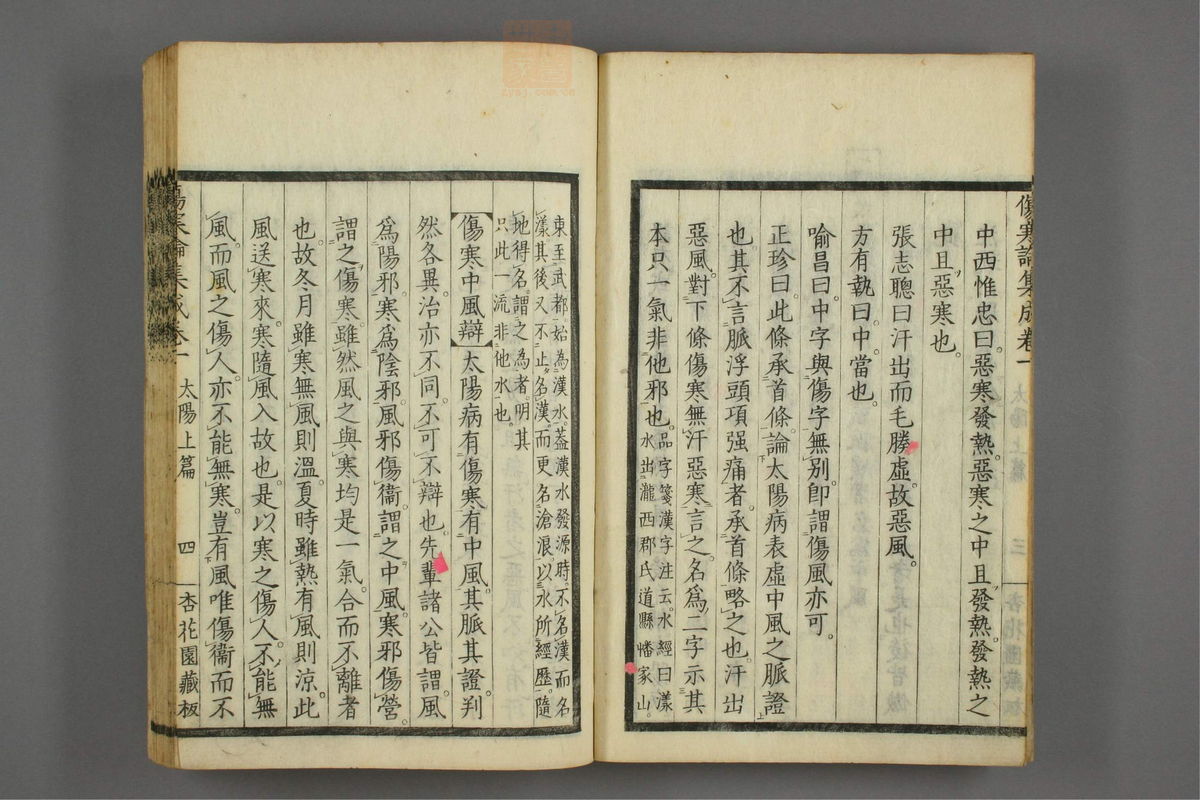 中西惟忠曰。惡寒發熱。惡寒之中且發熱。發熱之
中且惡寒也。
張志聰曰汗出而毛腠虛。故惡風。
方有執曰。中。當也。
喻昌曰。中字與傷字無別。卽謂傷風亦可。
正珍曰。此條承首條。論太陽病表虛中風之脈證
也。其不言脈浮頭項强痛者。承首條略之也。汗出
惡風。對下條傷寒無汗惡寒言之。名爲二字示其
本只一氣非他邪也。品字箋漢字注云。水經曰漾
水出瀧西郡氏道縣嶓家山。
傷寒論集成卷一
東至武都。始為漢水。蓋漢水發源時。不名漢而名
漾其後又不止名漢。而更名滄浪以三水所經歷。隨
地得名。謂之為者。明其
只此一流非他水也。
傷寒中風辯 太陽病有傷寒有中風。其脈其證。判
然各異。治亦不同。不可不辯也。先輩諸公皆謂。風
爲陽邪。寒爲陰邪。風邪傷衞。謂之中風。寒邪傷營。
謂之傷寒。雖然風之與寒均是一氣。合而不離者
也。故冬月雖寒無風則溫。夏時雖熱有風則涼。此
風送寒來。寒隨風入故也。是以寒之傷人。不能無
風。而風之傷人。亦不能無寒。豈有風唯傷衞而不
傷寒論集成卷一 太陽上篇 四 杏花園藏板